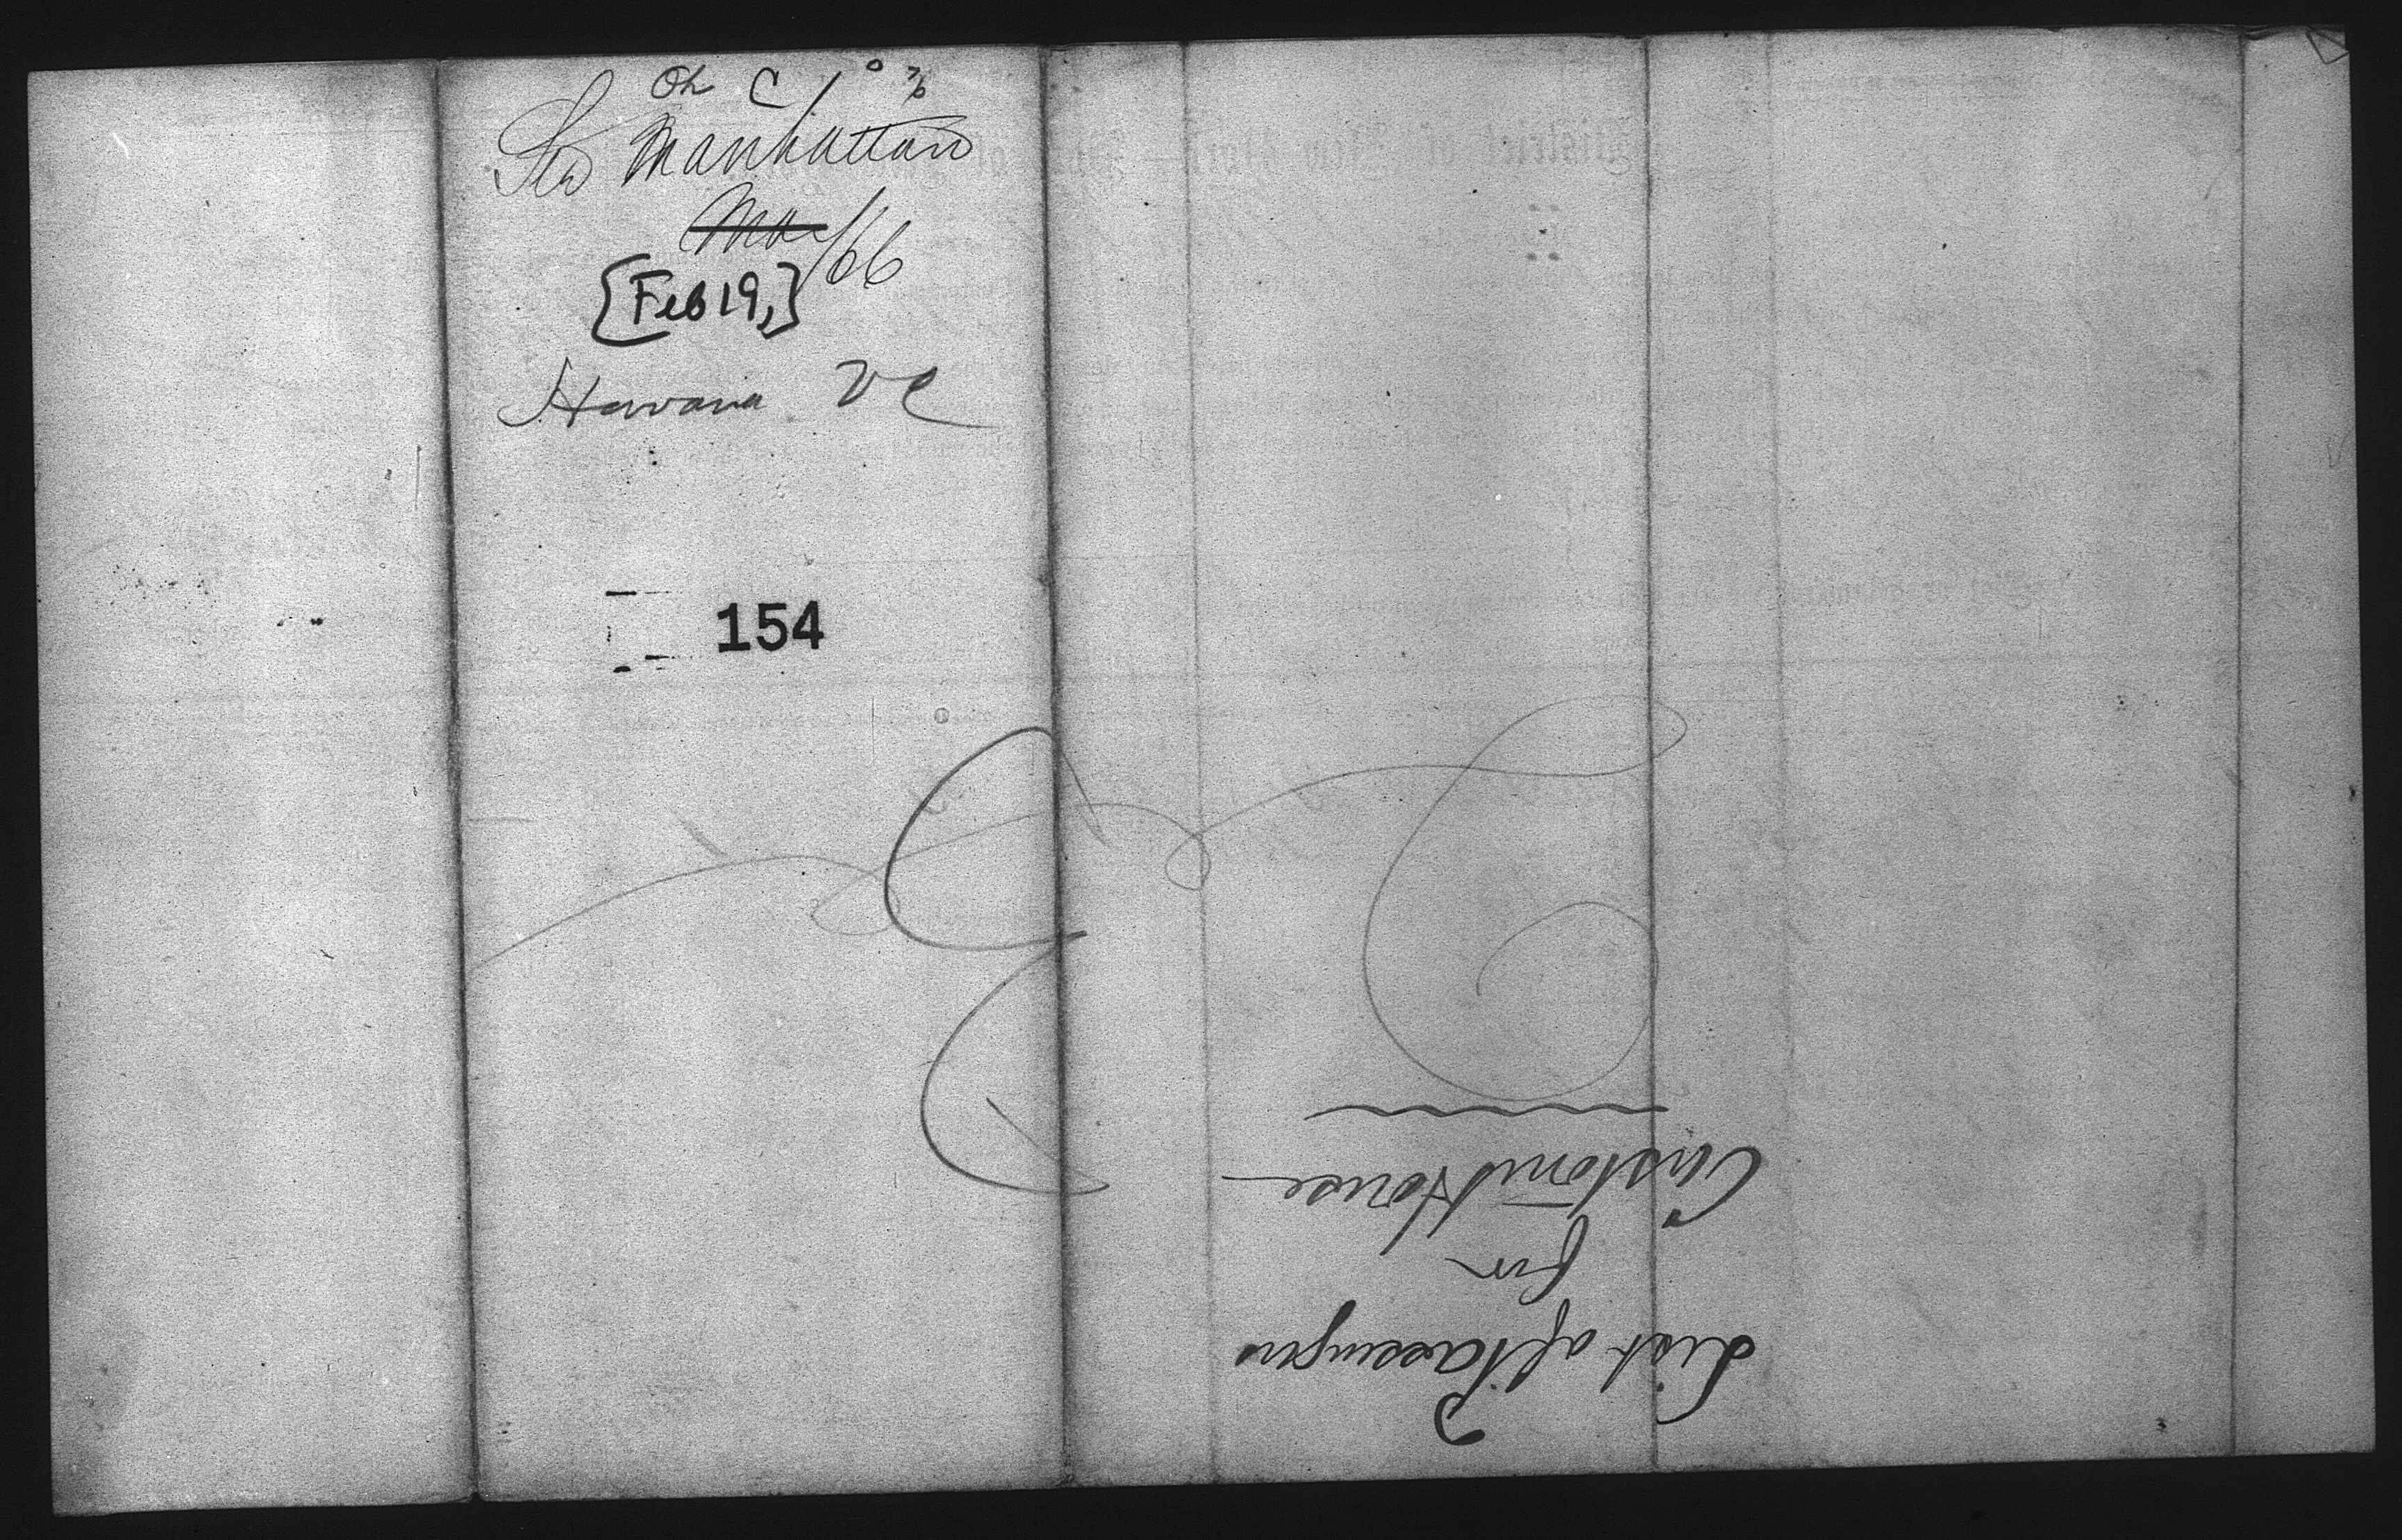 Str Manhattan
Mar/66
[Feb 19,]
Havana VC
154
List of Passengers
for
Custom House